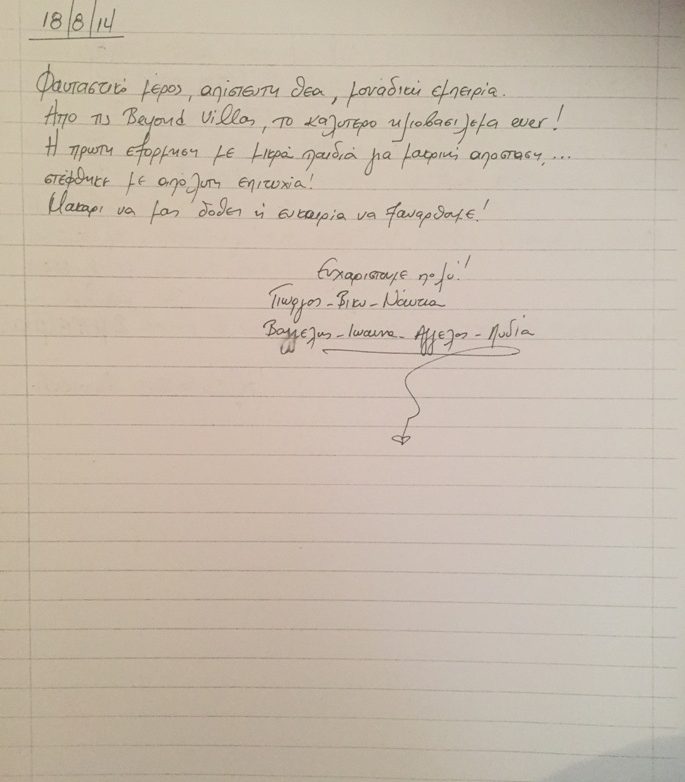 18/8/14
Φανταστικό μέρος, απίστευτη θέα, μοναδική εμπειρία.
Απο τις Beyond Villas, το καλύτερο ηλιοβασίλεμα ever!
Η πρωτη εξορμηση με μικρά παιδιά για μακρινή αποσταση,...
στέφθηκε με απολυτη επιτυχία!
Μακαρι να μας δοθει η ευκαιρία να ξαναρθουμε!
Ευχαριστουμε πολύ!!
Γιωργος - Βικυ - Νάντια
Βαγγελης - Ιωαννα - Αγγελος - Λυδία